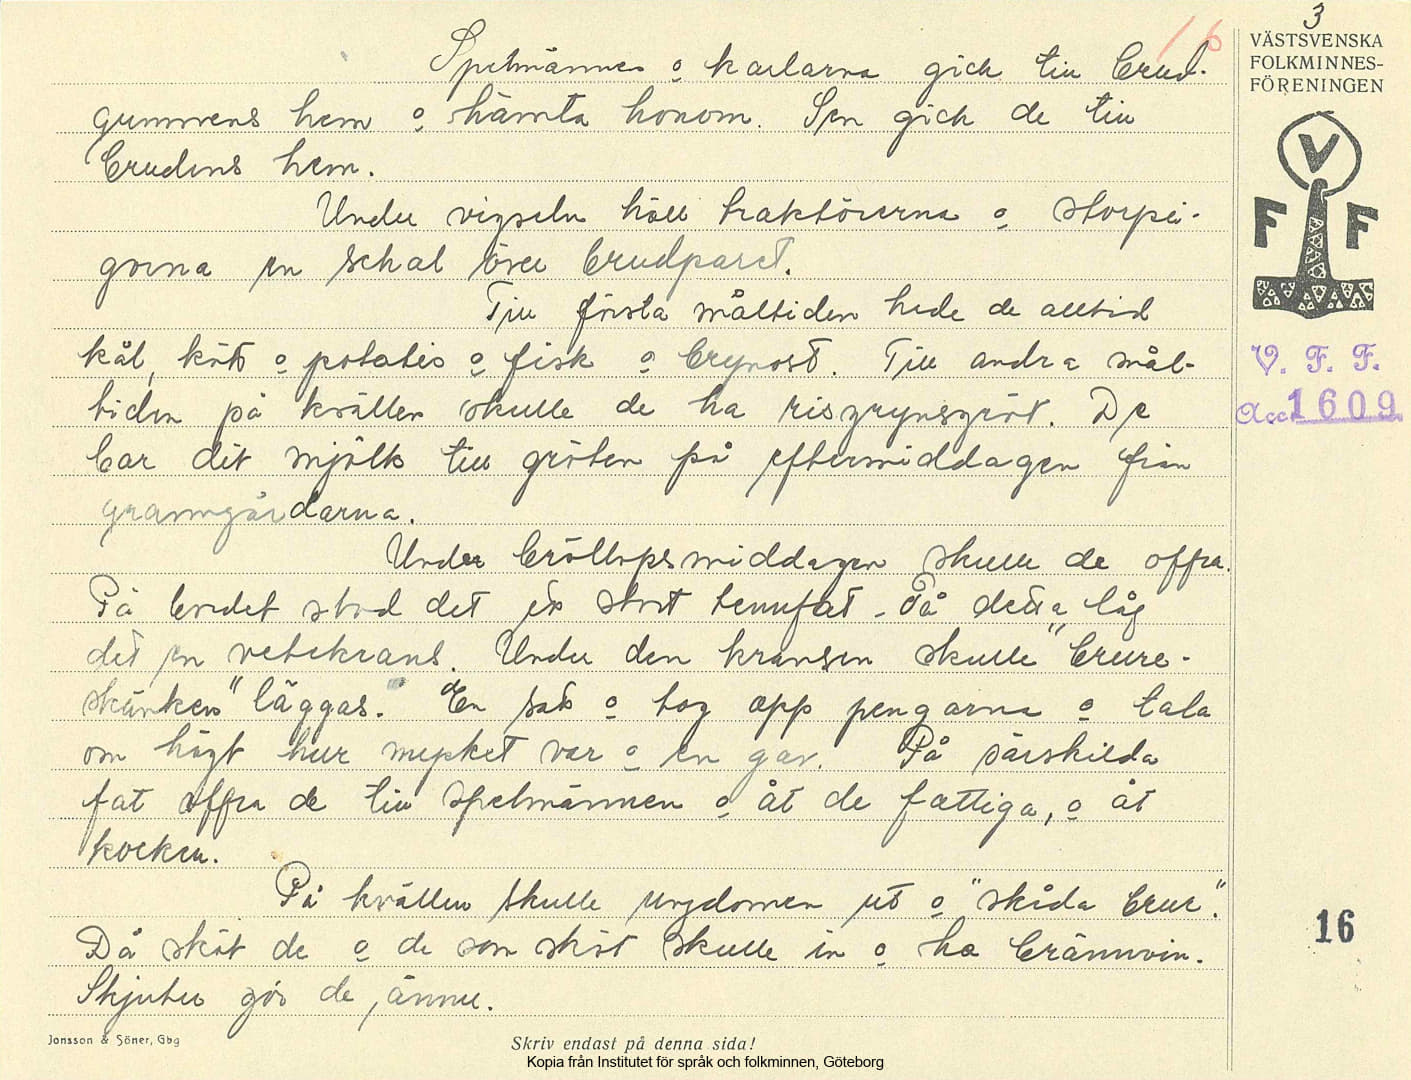 3
16
VÄSTSVENSKA
FOLKMINNES-
FÖRENINGEN
V
F F
V. F. F.
Acc. 1609
Spelmännen o karlarna gick till brud-
gummens hem o hämta honom. Sen gick de till
brudens hem.
Under vigseln höll traktörerna o storpi-
gorna en schal över brudparet.
Till första måltiden hade de alltid
kål, kött o potatis o fisk o brynost. Till andra mål-
tiden på kvällen skulle de ha risgrynsgröt. De
bar dit mjölk till gröten på eftermiddagen från
granngårdarna.
Under bröllopsmiddagen skulle de offra.
På bordet stod det ett stort tennfat. På detta låg
det en vetekrans. Under den kransen skulle "brure-
skänken" läggas. En satt o tog opp pengarna o tala
om högt hur mycket var o en gav. På särskilda
fat offra de till spelmännen o åt de fattiga, o åt
kocken.
På kvällen skulle ungdomen ut o "skåda brur".
Då sköt de o de som sköt skulle in o ha brännvin.
Skjuter gör de ännu.
16
Jonsson & Söner, Gbg
Skriv endast på denna sida!
Kopia från Institutet för språk och folkminnen, Göteborg